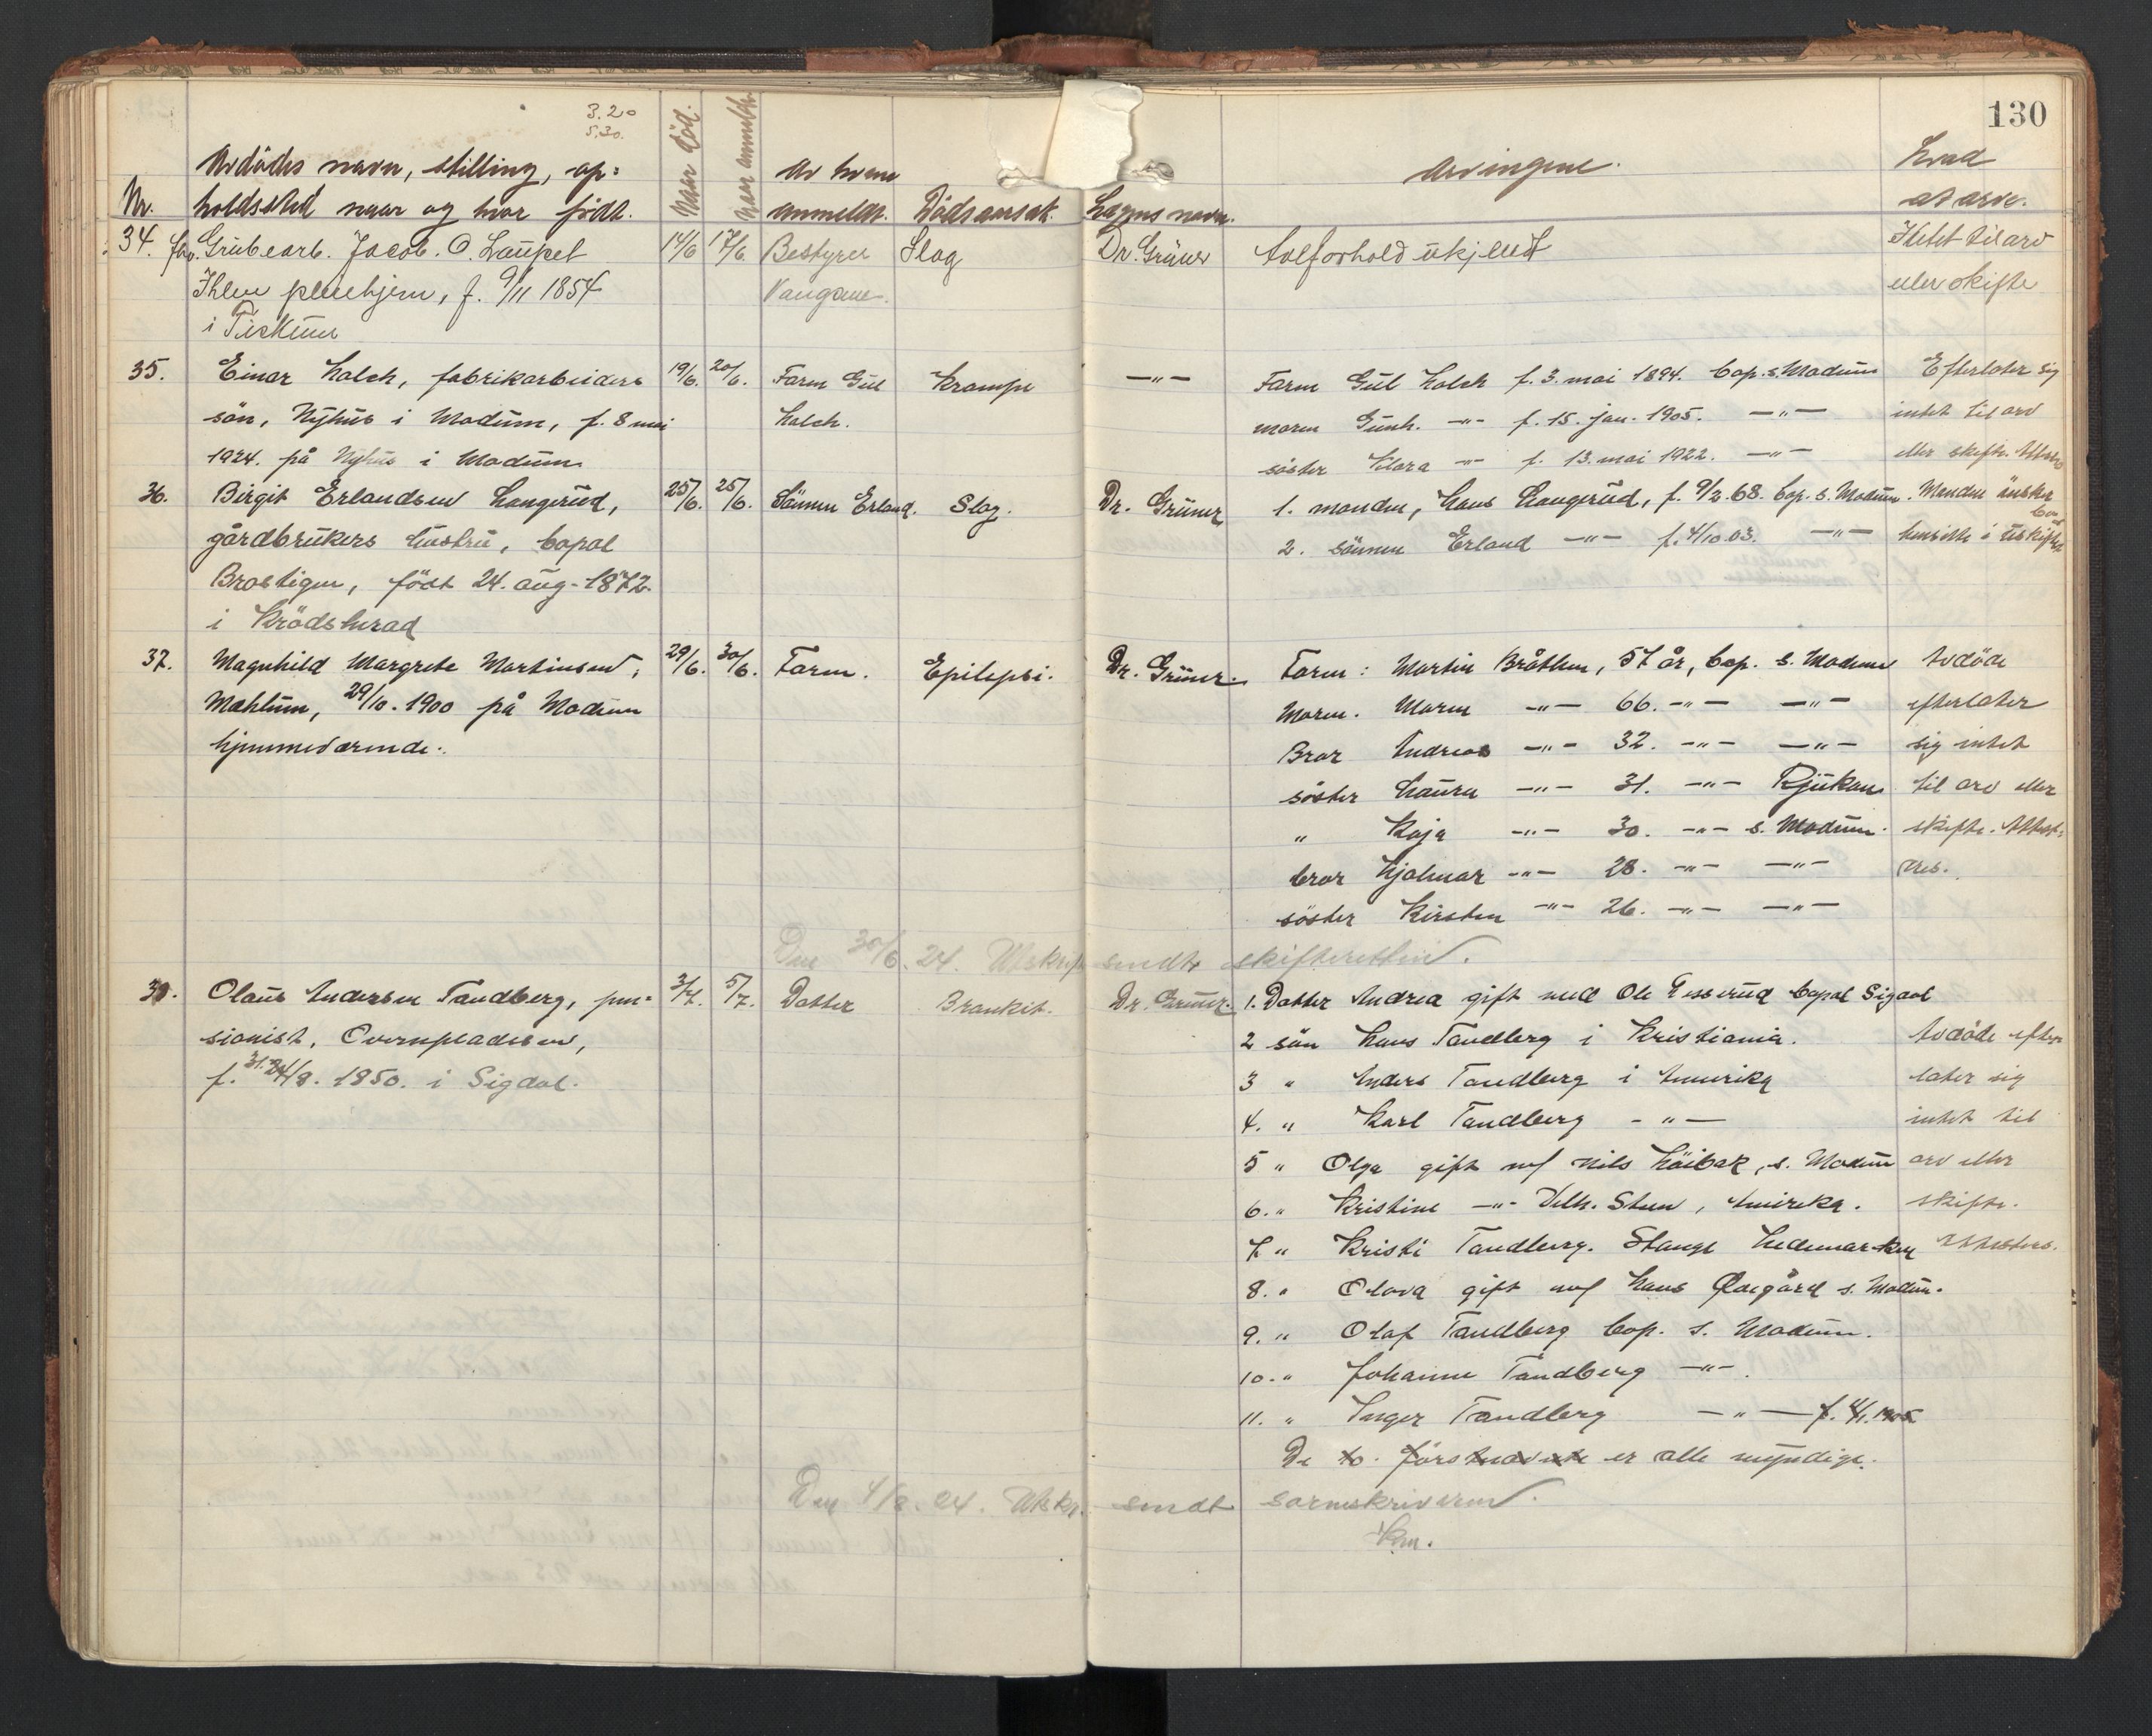 130
3.20
5.30.
Avdödes navn, stilling, op=
holdssted naar og hvor födt.
Nr.
Naar död.
Naar anmeldt.
Av hvem
anmeldt.
Dödsaarsak.
Lægens navn.
Arvingene.
Hvad
at arve.
34. fhv. Grubearb. Jacob. O. Laupet
Ihlen pleiehjem, f. 9/11 1854
i Fiskum
14/6 17/6.
Bestyrer
Vangene.
Slag
Dr. Grüner
Avlforhold ukjendt
Intet til arv
eller skifte
35. Einar Holch, fabrikarbeiders
sön, Nyhus i Modum, f. 8 mai
1924. på Nyhus i Modum
19/6. 20/6.
Faren Gul
Holch.
Krampe
—"—
Faren Gul Holch f. 3. mai 1894. bop. s. Modum
moren Gunh. —"— f. 15. jan. 1905. —"—
söster Klara —"— f. 13. mai 1922. —"—
Efterlater sig
intet til arv
eller skifte.
36. Birgit Erlandsen Langerud,
gårdbrukers hustru, bopæl
Brostigen, födt 24. aug. 1872.
i Krödsherad
25/6. 25/6.
Sönnen Erland.
Slag.
Dr. Grüner
1. manden, Hans Langerud, f. 9/2. 68. bop. s. Modum.
2. sönnen Erland —"— f. 4/10. 03. —"—
Manden önsker
hensitte i uskiftet
bo
37. Magnhild Margrete Martinsen,
Mæhlum, 29/10. 1900 på Modum
hjemmeværende.
29/6. 30/6.
Faren.
Epilepsi.
Dr. Grüner.
Faren: Martin Bråthen, 57 år, bop. s. Modum
Moren. Maren —"— 66. —"— —"—
Bror Andreas —"— 32. —"— —"—
söster Laura —"— 31. —"— Rjukan
" Kaja —"— 30. —"— s. Modum.
bror Hjalmar —"— 28. —"— —"—
söster Kirsten —"— 26. —"— —"—
Avdöde
efterlater
sig intet
til arv eller
skifte. Attest=
eres.
Den 30/6. 24. Utskrift sendt skifteretten.
38. Olaus Andersen Tandberg, pen=
sionist, Overnpladsen,
f. 31. 24/8. 1850. i Sigdal.
3/7. 5/7.
Datter
Bronkit.
Dr. Grüner.
1. Datter Andrea gift med Ole Esserud bopæl Sigdal
2 sön Hans Tandberg i Kristiania.
3 " Anders Tandberg i Amerika
4. " Karl Tandberg - " —
5 " Olga gift m/ Nils Höibak, s. Modum
6. " Kristine —"— Vilh. Steen, Amerika.
7 " Kristi Tandberg. Stange Hedemarken
8. " Olava gift m/ Hans Ödegård s. Modum.
9. " Olaf Tandberg bop. s. Modum.
10. " Johanne Tandberg —"—.
11. " Inger Tandberg — " — f. 4/1. 1905
De 10. förstnævnte er alle myndige.
Avdöde efter
later sig
intet til
arv eller
skifte.
Attesteres.
Den 4/8. 24. Utskr. sendt sorenskriveren.
Km.